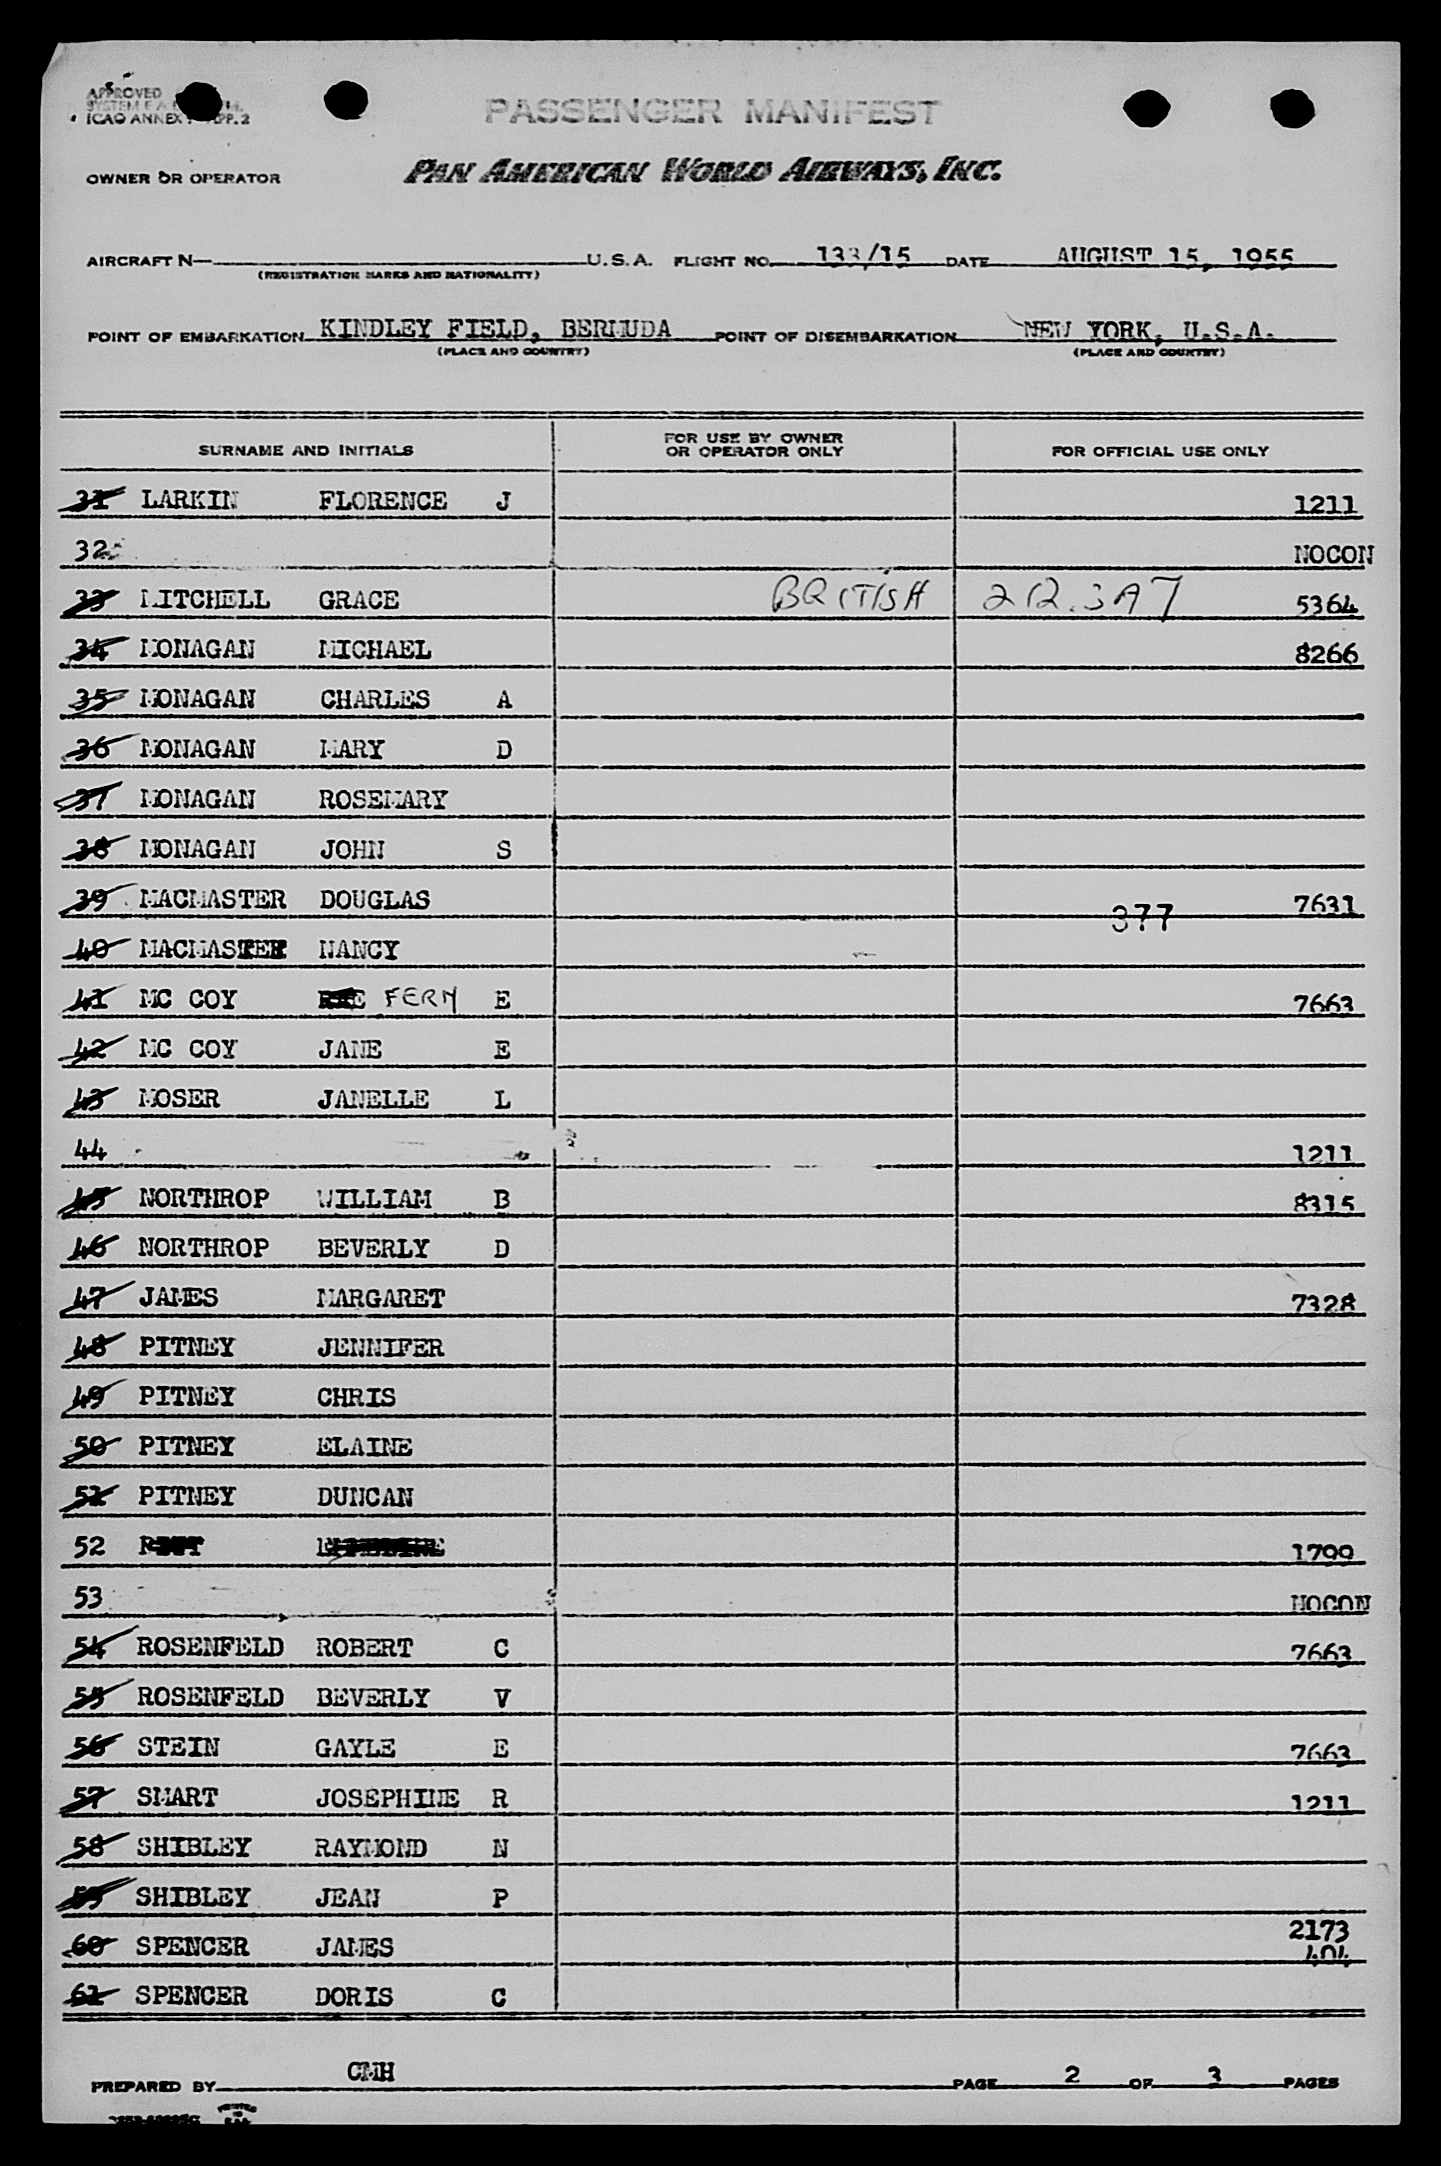 APPROVED
ICAO ANNEX
PASSENGER MANIFEST
OWNER OR OPERATOR PAN AMERICAN WORLD AIRWAYS, INC.
AIRCRAFT N— U.S.A. FLIGHT NO. 133/15 DATE AUGUST 15, 1955
(REGISTRATION MARKS AND NATIONALITY)
POINT OF EMBARKATION KINDLEY FIELD, BERMUDA POINT OF DISEMBARKATION NEW YORK, U.S.A.
(PLACE AND COUNTRY) (PLACE AND COUNTRY)
SURNAME AND INITIALS FOR USE BY OWNER OR OPERATOR ONLY FOR OFFICIAL USE ONLY
31 LARKIN FLORENCE J 1211
32 NOCON
33 MITCHELL GRACE BRITISH 212.3A7 5364
34 MONAGAN MICHAEL 8266
35 MONAGAN CHARLES A
36 MONAGAN MARY D
37 MONAGAN ROSEMARY
38 MONAGAN JOHN S
39 MACMASTER DOUGLAS 377 7631
40 MACMASTER NANCY
41 MC COY FERN E 7663
42 MC COY JANE E
43 MOSER JANELLE L
44 1211
45 NORTHROP WILLIAM B 8315
46 NORTHROP BEVERLY D
47 JAMES MARGARET 7328
48 PITNEY JENNIFER
49 PITNEY CHRIS
50 PITNEY ELAINE
51 PITNEY DUNCAN
52 1799
53 NOCON
54 ROSENFELD ROBERT C 7663
55 ROSENFELD BEVERLY V
56 STEIN GAYLE E 7663
57 SMART JOSEPHINE R 1211
58 SHIBLEY RAYMOND N
59 SHIBLEY JEAN P
60 SPENCER JAMES 2173 404
61 SPENCER DORIS C
PREPARED BY CMH PAGE 2 OF 3 PAGES